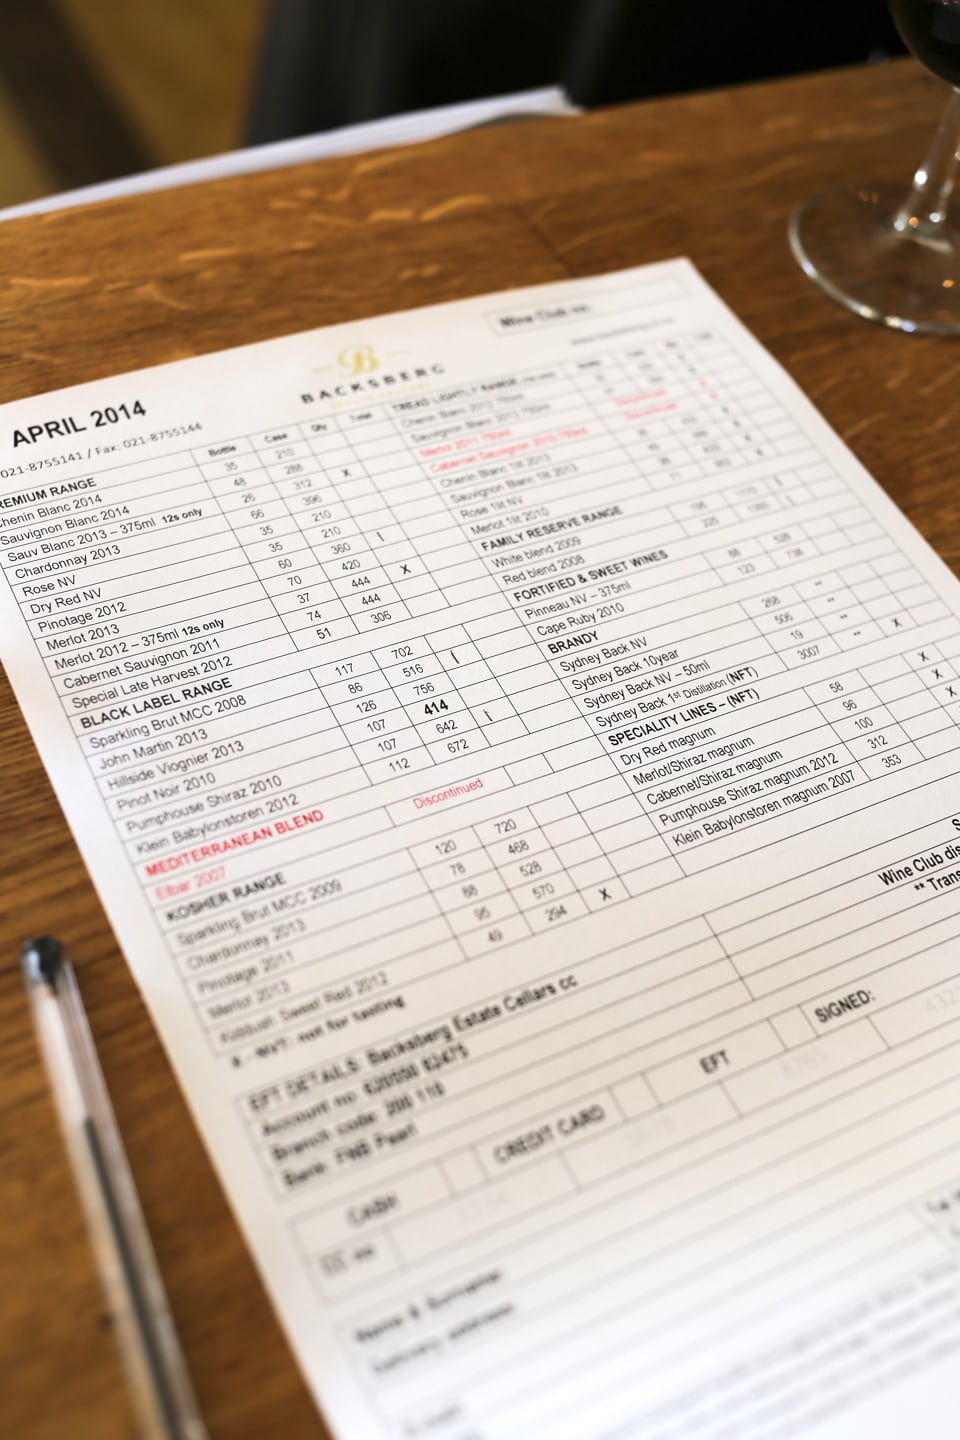 Wine Club
B
BACKSBERG
APRIL 2014
021-8755141 / Fax: 021-8755144
Bottle Case Qty Total
REMIUM RANGE 35 210
Chenin Blanc 2014 48 288
Sauvignon Blanc 2014 26 312 X
Sauv Blanc 2013 – 375ml 12s only 66 396
Chardonnay 2013 35 210
Rose NV 35 210
Dry Red NV 60 360
Pinotage 2012 70 420
Merlot 2013 37 444 X
Merlot 2012 – 375ml 12s only 74 444
Cabernet Sauvignon 2011 51 306
Special Late Harvest 2012
BLACK LABEL RANGE 117 702
Sparkling Brut MCC 2008 86 516
John Martin 2013 126 756
Hillside Viognier 2013 107 414
Pinot Noir 2010 107 642
Pumphouse Shiraz 2010 112 672
Klein Babylonstoren 2012
MEDITERRANEAN BLEND Discontinued
Elbar 2007
KOSHER RANGE 120 720
Sparkling Brut MCC 2009 78 468
Chardonnay 2013 88 528
Pinotage 2011 95 570
Merlot 2013 49 294 X
Kiddush Sweet Red 2012
TREAD LIGHTLY
Chenin Blanc 2013 750ml
Sauvignon Blanc 2013 750ml
Merlot 2011 750ml Discontinued
Cabernet Sauvignon 2010 750ml Discontinued
Chenin Blanc 1lt 2013
Sauvignon Blanc 1lt 2013
Rose 1lt NV
Merlot 1lt 2010
FAMILY RESERVE RANGE
White blend 2009
Red blend 2008
FORTIFIED & SWEET WINES
Pinneau NV – 375ml
Cape Ruby 2010 123 738
BRANDY
Sydney Back NV 268 **
Sydney Back 10year 506 **
Sydney Back NV – 50ml 19 **
Sydney Back 1st Distillation (NFT) 3007 X
SPECIALITY LINES – (NFT)
Dry Red magnum 58 X
Merlot/Shiraz magnum 96 X
Cabernet/Shiraz magnum 100 X
Pumphouse Shiraz magnum 2012 312
Klein Babylonstoren magnum 2007 353
Wine Club dis
** Trans
not for tasting
EFT DETAILS: Backsberg Estate Cellars cc
Account no:
Branch code: 200 110
Bank: FNB Paarl
CASH CREDIT CARD EFT SIGNED:
Name & Surname
Delivery address